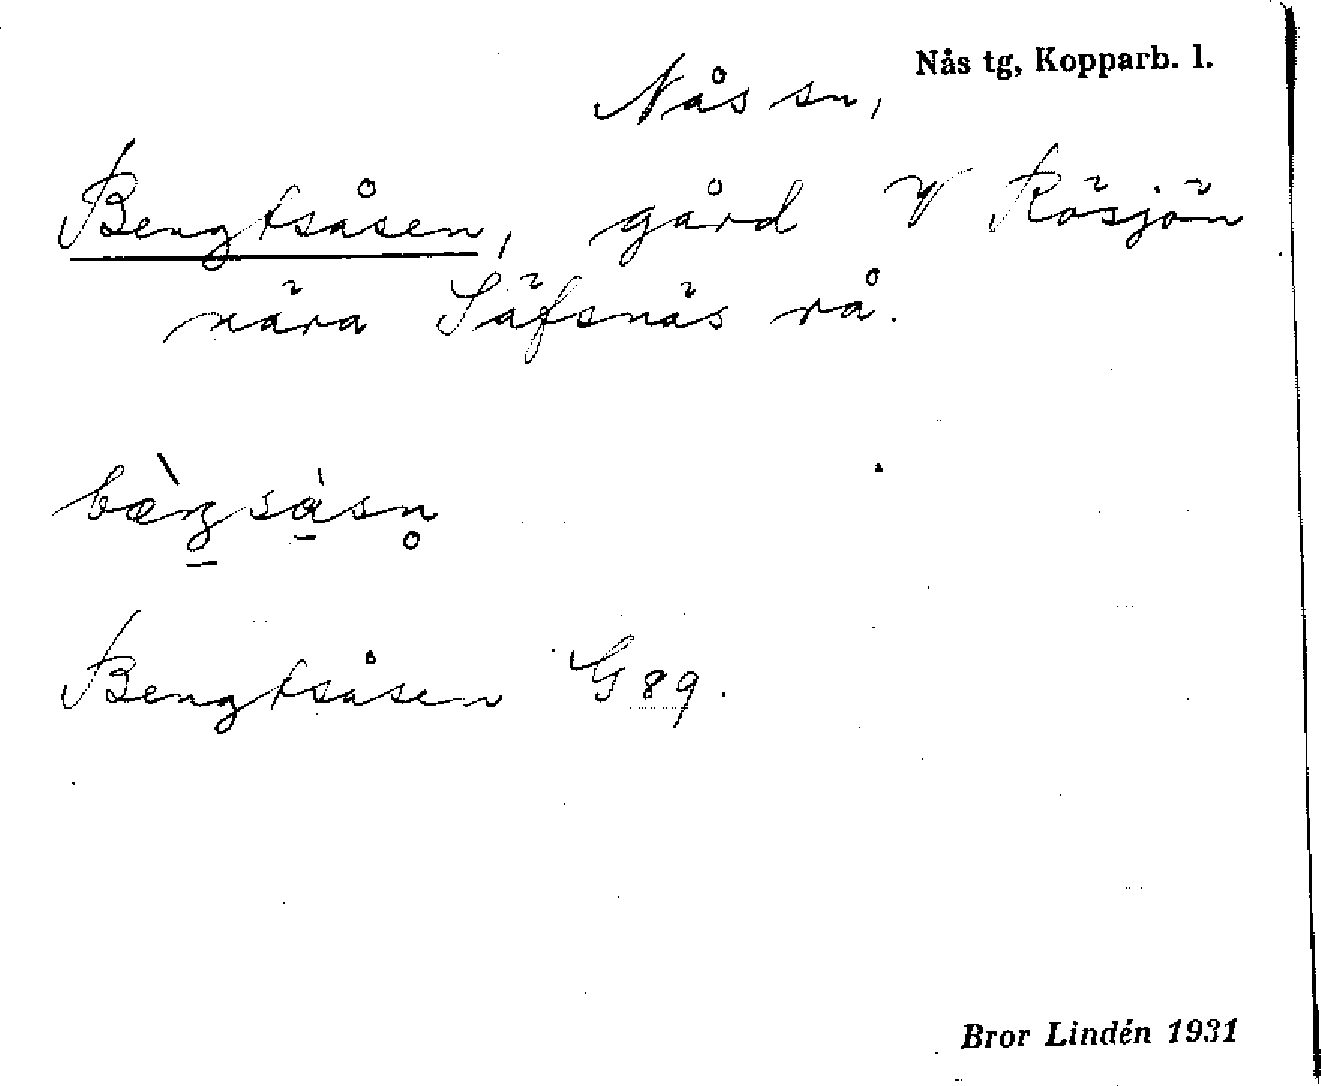 Nås tg, Kopparb. l.
Nås sn,
Bengtsåsen, gård V Rösjön
nära Säfsnäs rå.
Bengtsåsen G 89.
Bror Lindén 1931